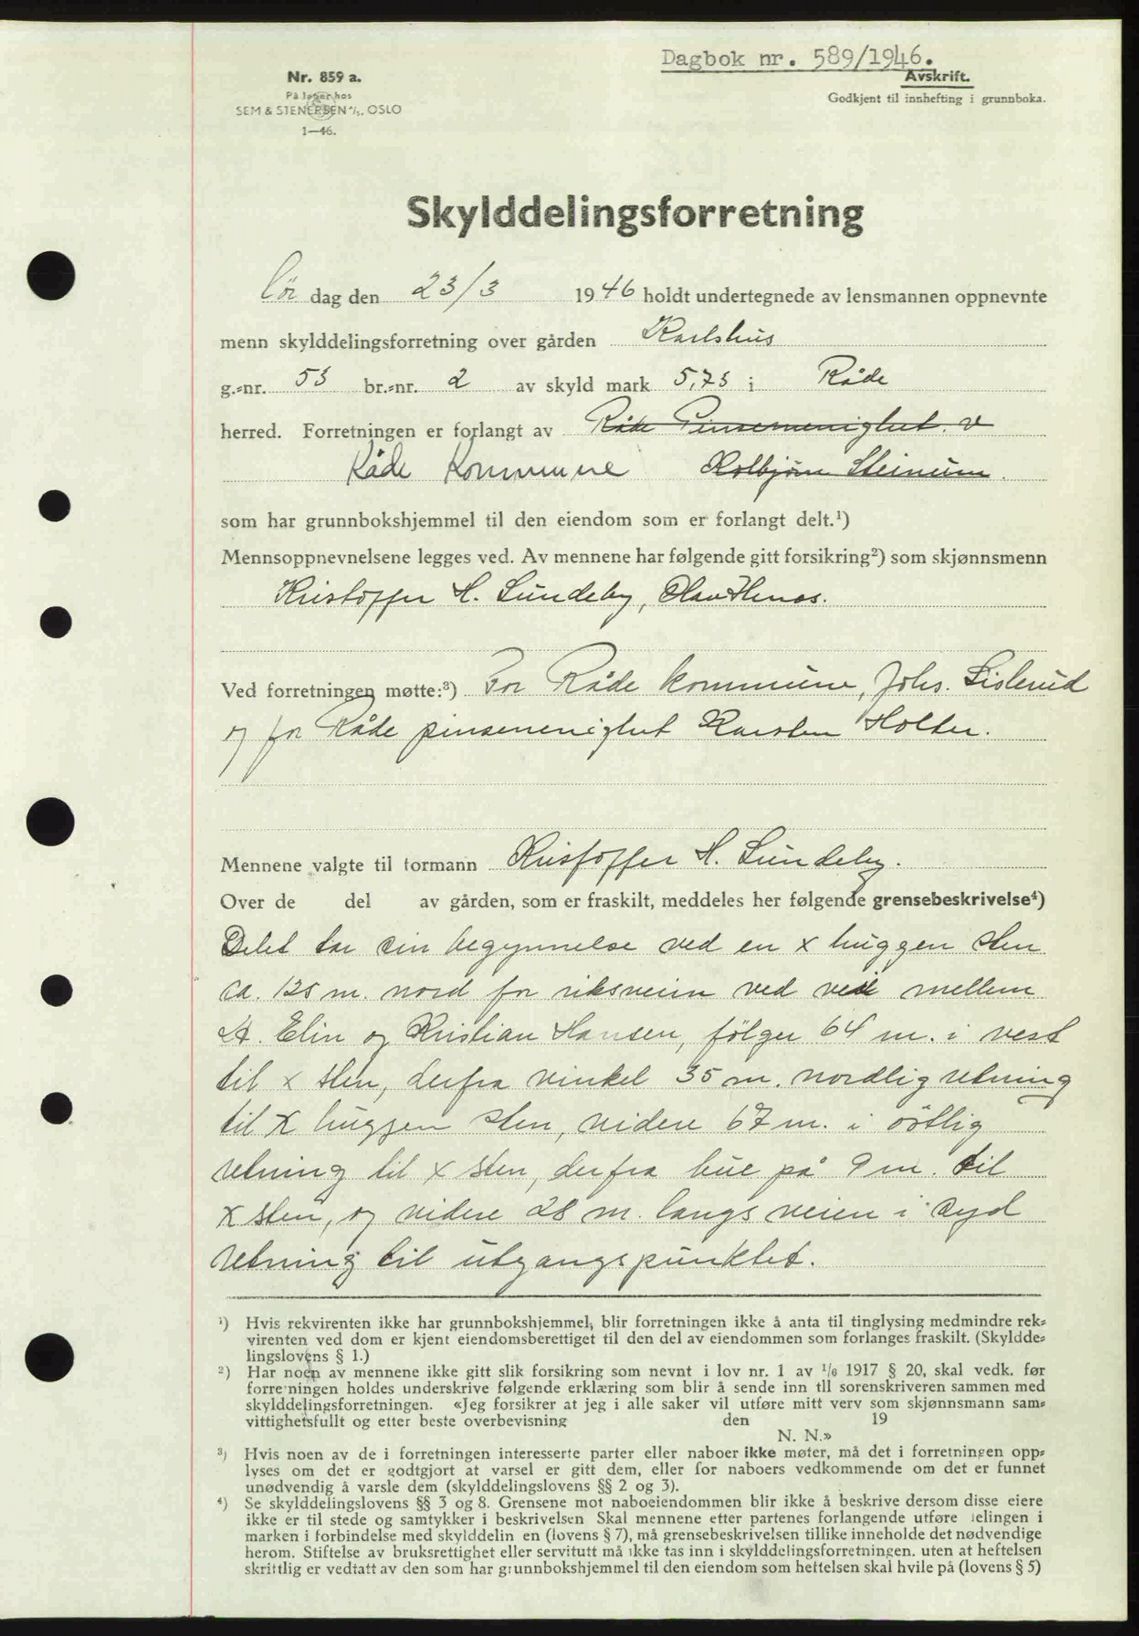 Dagbok nr. 589/1946.
Avskrift.
Godkjent til innhefting i grunnboka.
Nr. 859 a.
På lager hos
SEM & STENERSEN A/S, OSLO
1—46.
Skylddelingsforretning
Lör dag den 23/3 1946 holdt undertegnede av lensmannen oppnevnte
menn skylddelingsforretning over gården Karlshus
g.-nr. 53 br.-nr. 2 av skyld mark 5,73 i Råde
herred. Forretningen er forlangt av Råde Pinsemenighet. v
Råde Kommune Kolbjørn Steinum.
som har grunnbokshjemmel til den eiendom som er forlangt delt.¹)
Mennsoppnevnelsene legges ved. Av mennene har følgende gitt forsikring²) som skjønnsmenn
Kristoffer H. Sundeby, Olav Henos.
Ved forretningen møtte:³) For Råde kommune, Johs. Lislerud
og for Råde pinsemenighet Karsten Holter.
Mennene valgte til formann Kristoffer H. Sundeby.
Over de del av gården, som er fraskilt, meddeles her følgende grensebeskrivelse⁴)
Delet tar sin begynnelse ved en x huggen sten
ca. 125 m. nord for riksveien ved vei mellem
A. Elin og Kristian Hansen, følger 64 m. i vest
til x sten, derfra vinkel 35 m. nordlig retning
til x huggen sten, videre 67 m. i östlig
retning til x sten, derfra bue på 9 m. til
x sten, og videre 28 m. langs veien i syd
retning til utgangspunktet.
¹) Hvis rekvirenten ikke har grunnbokshjemmel, blir forretningen ikke å anta til tinglysing medmindre rek-
virenten ved dom er kjent eiendomsberettiget til den del av eiendommen som forlanges fraskilt. (Skyldde-
lingslovens § 1.)
²) Har noen av mennene ikke gitt slik forsikring som nevnt i lov nr. 1 av 1/6 1917 § 20, skal vedk. før
forretningen holdes underskrive følgende erklæring som blir å sende inn til sorenskriveren sammen med
skylddelingsforretningen. «Jeg forsikrer at jeg i alle saker vil utføre mitt verv som skjønnsmann sam-
vittighetsfullt og etter beste overbevisning den 19
N. N.»
³) Hvis noen av de i forretningen interesserte parter eller naboer ikke møter, må det i forretningen opp-
lyses om det er godtgjort at varsel er gitt dem, eller for naboers vedkommende om det er funnet
unødvendig å varsle dem (skylddelingslovens §§ 2 og 3).
⁴) Se skylddelingslovens §§ 3 og 8. Grensene mot naboeiendommen blir ikke å beskrive dersom disse eiere
ikke er til stede og samtykker i beskrivelsen Skal mennene etter partenes forlangende utføre delingen i
marken i forbindelse med skylddelin en (lovens § 7), må grensebeskrivelsen tillike inneholde det nødvendige
herom. Stiftelse av bruksrettighet eller servitutt må ikke tas inn i skylddelingsforretningen. uten at heftelsen
skriftlig er vedtatt av den som har grunnbokshjemmel til den eiendom som heftelsen skal hvile på (lovens § 5)